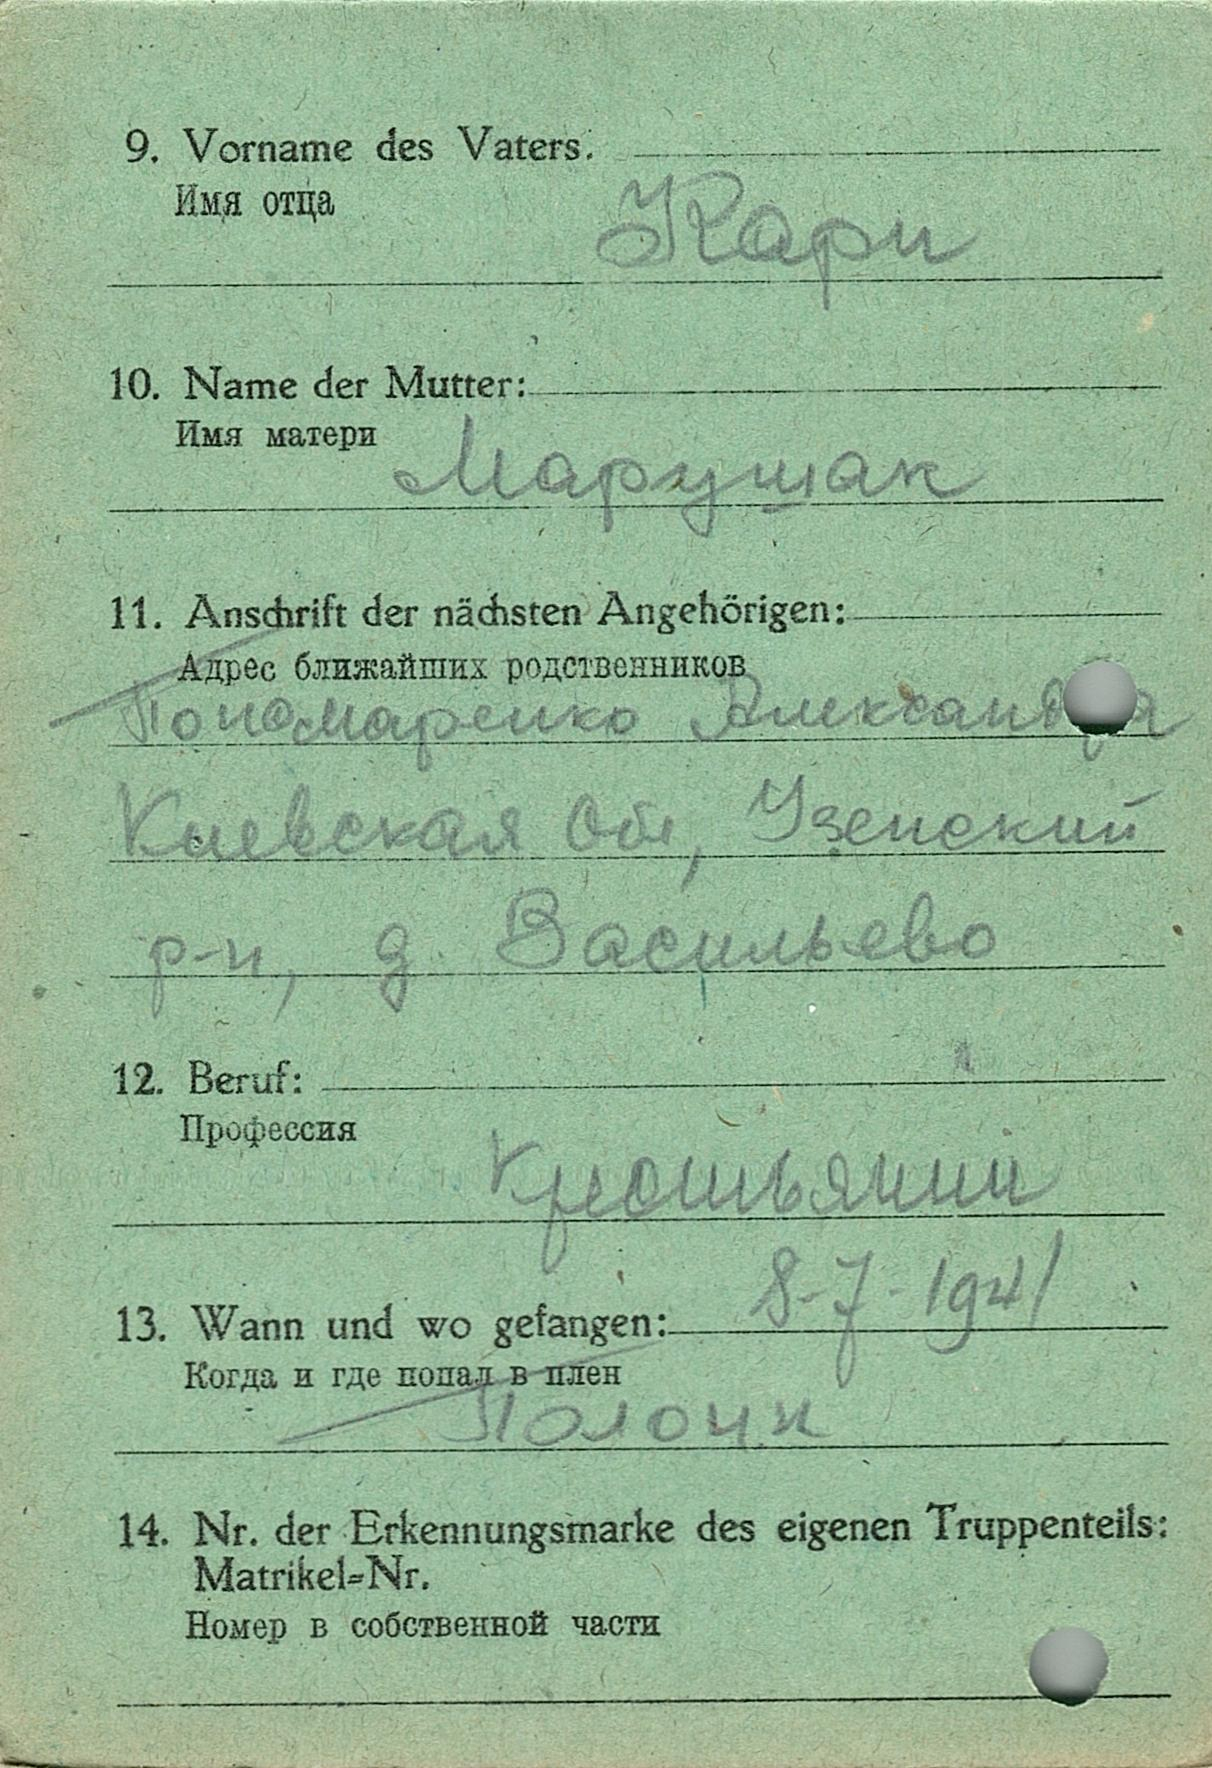 9. Vorname des Vaters:
Имя отца
Карп
10. Name der Mutter:
Имя матери
Марушак
11. Anschrift der nächsten Angehörigen:
Адрес ближайших родственников
Пономаренко Александра
Киевская Обл, Узенский
р-н, д. Васильево
12. Beruf:
Профессия
Крестьянин
8-7-1941
13. Wann und wo gefangen:
Когда и где попал в плен
Полоцк
14. Nr. der Erkennungsmarke des eigenen Truppenteils:
Matrikel=Nr.
Номер в собственной части